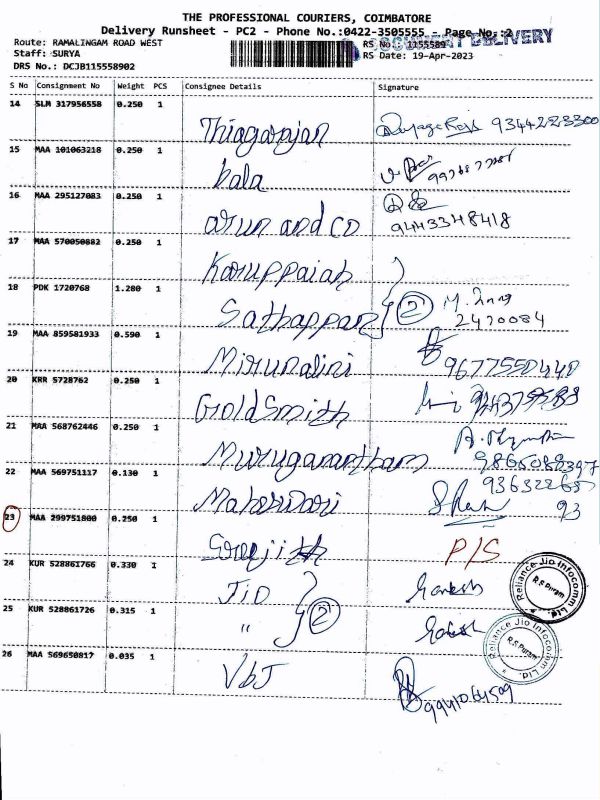 THE PROFESSIONAL COURIERS, COIMBATORE
Delivery Runsheet - PC2 - Phone No.:0422-3505555 - Page No.:2
DELIVERY
Route: RAMALINGAM ROAD WEST RS No: 1155589
Staff: SURYA RS Date: 19-Apr-2023
DRS No.: DCJB115558902
S No Consignment No Weight PCS Consignee Details Signature
14 SLM 317956558 0.250 1 Thiagarajan 9344228300
15 MAA 101063218 0.250 1 bala
16 MAA 295127083 0.250 1 arun and co 9443348418
17 MAA 570050882 0.250 1 Karuppaiah
18 PDK 1720768 1.280 1 Sathappan 2 2470084
19 MAA 859581933 0.590 1 Mirunalini 9677550440
20 KRR 5728762 0.250 1 GoldSmith
21 MAA 568762446 0.250 1 Muruganantham 9865082397
22 MAA 569751117 0.130 1 Maheswari 93
23 MAA 299751800 0.250 1 Sreejith P/S
24 KUR 528861766 0.330 1 Jio Ganesh
Reliance Jio Infocomm Ltd.
R.S Puram
25 KUR 528861726 0.315 1 " 2 Ganesh
Reliance Jio Infocomm Ltd.
R.S Puram
26 MAA 569650817 0.035 1 VbJ